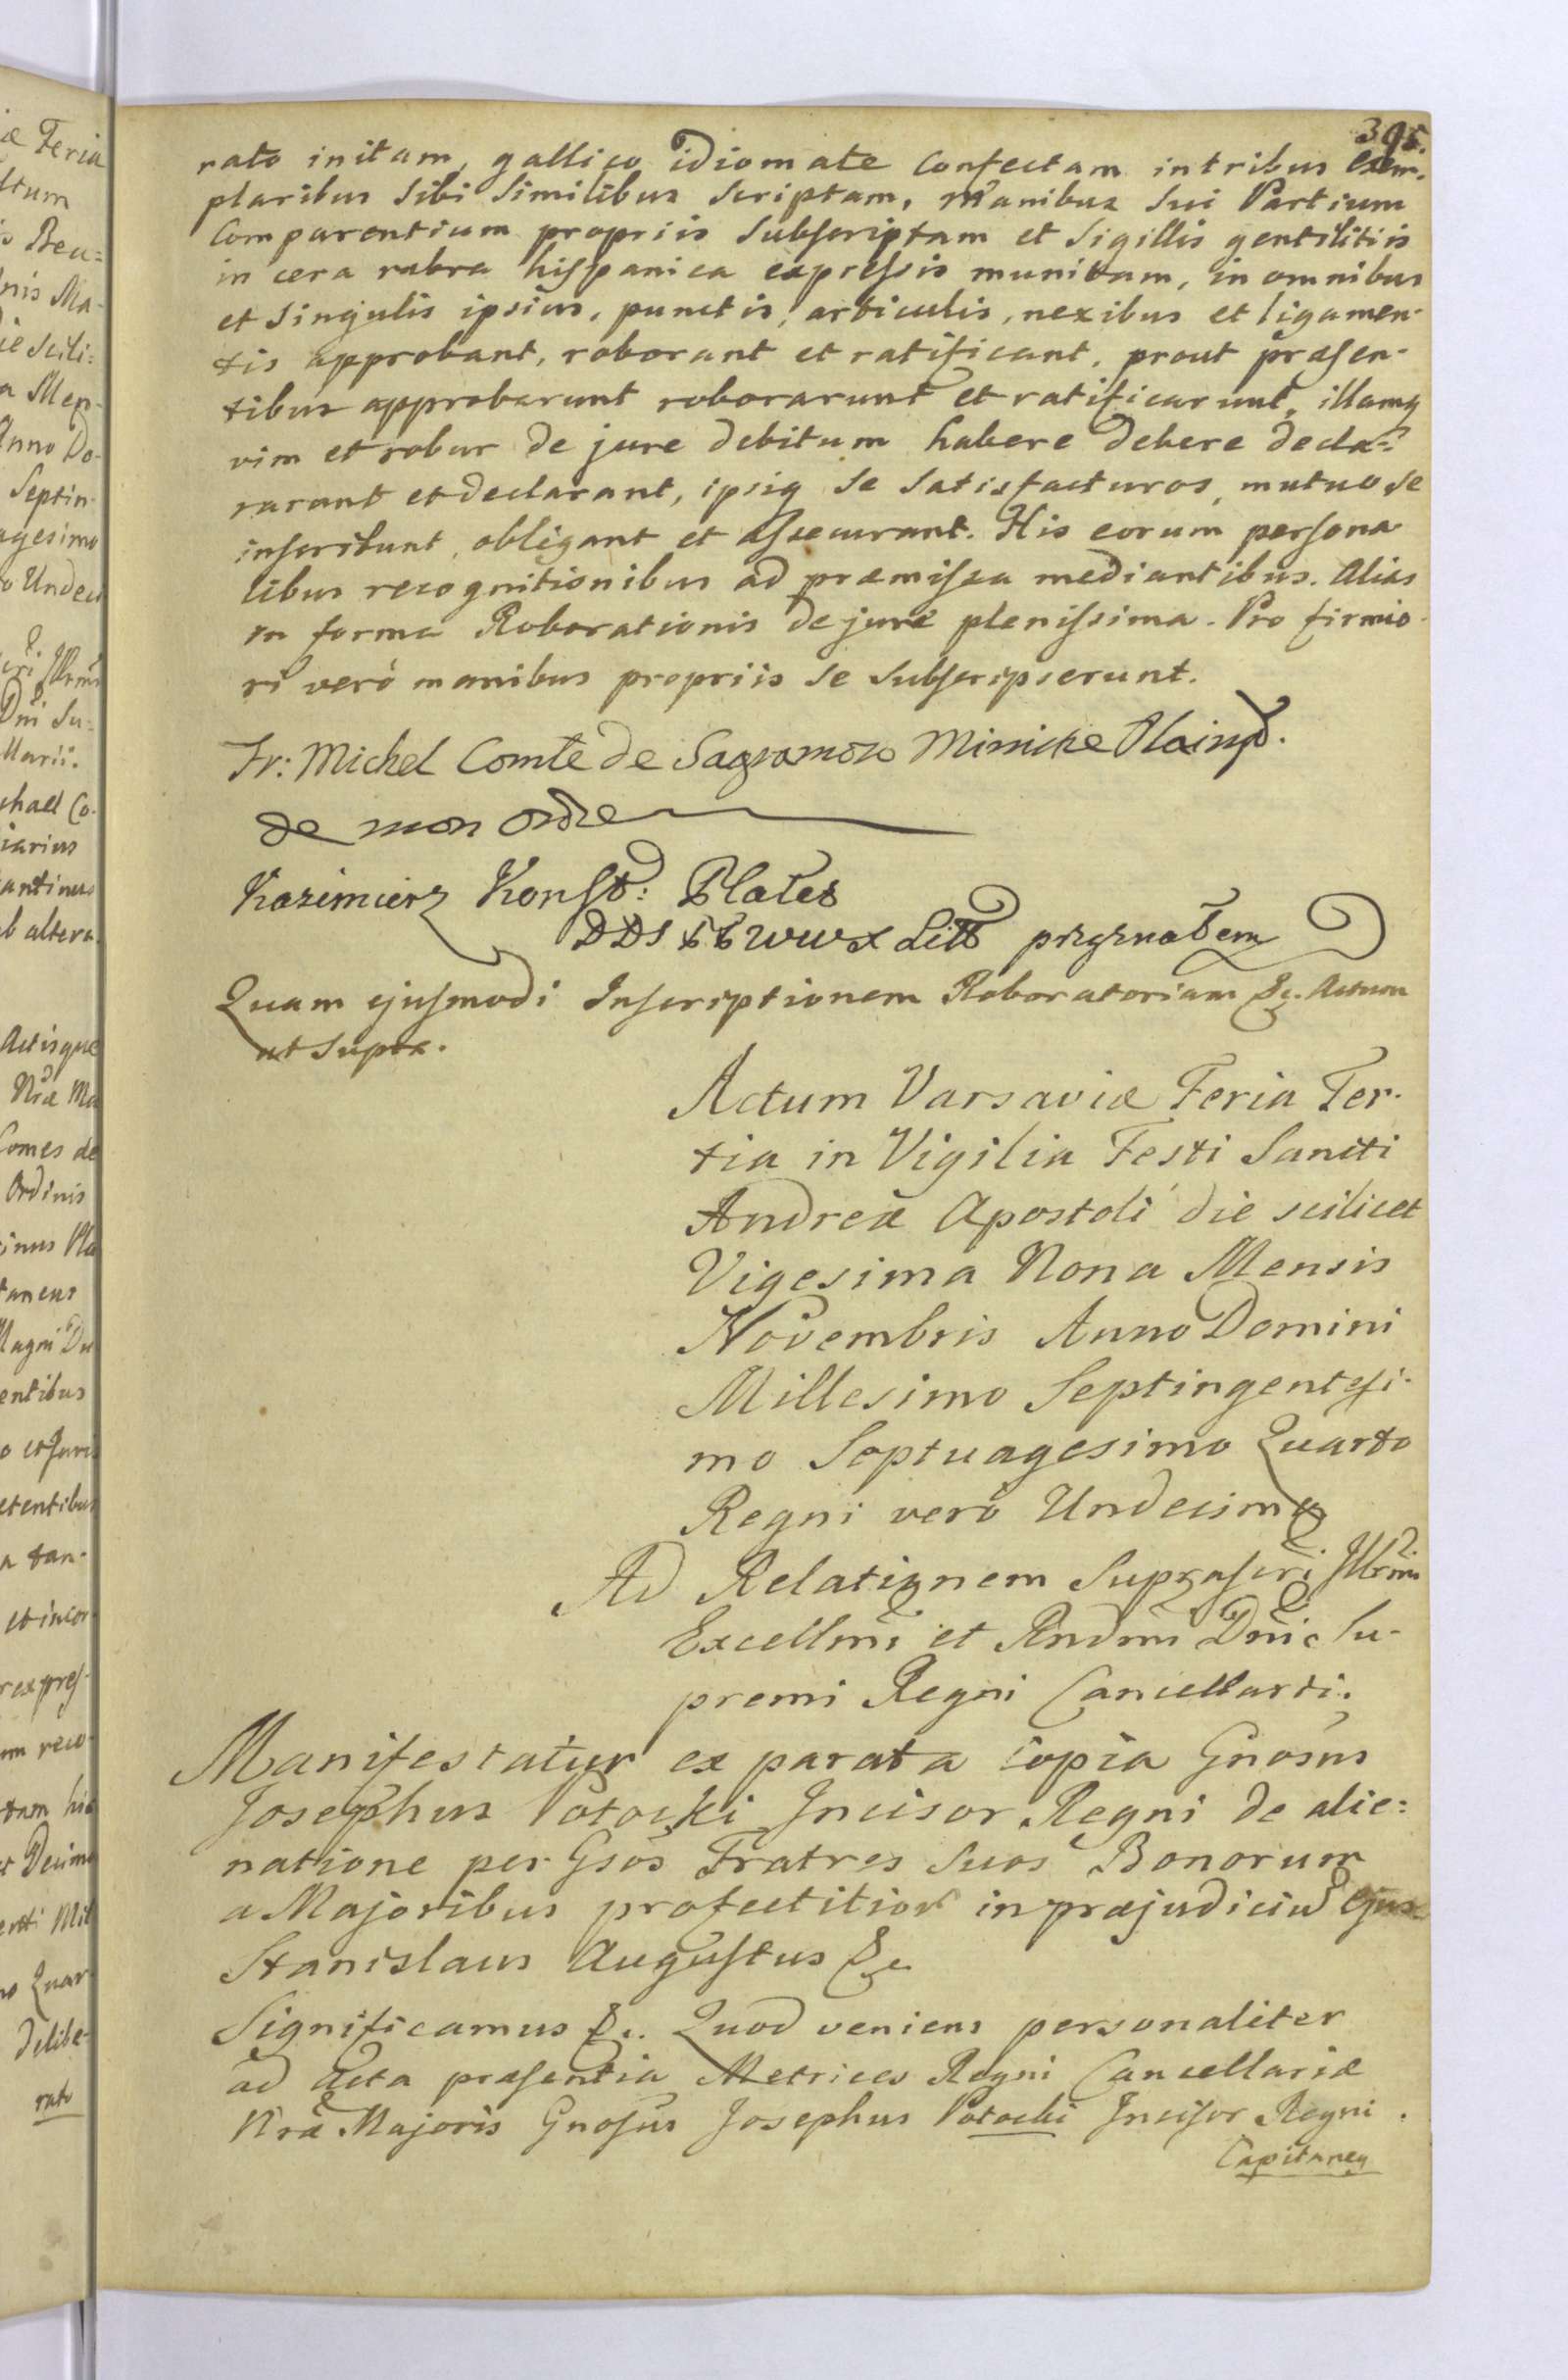 395.
rato initam, gallico idiomate Confectam in tribus Exem-
plaribus Sibi Similibus Scriptam, manibus Sui Partium
Comparentium propriis Subscriptam et Sigillis gentilitiis
in cera rubra hispanica expressis munitam, in omnibus
et Singulis ipsius, punctis, articulis, nexibus et ligamen-
tis approbant, roborant et ratificant, prout præsen-
tibus approbarunt roborarunt et ratificarunt, illamq
vim et robur de jure debitum habere debere decla=
rarant et declarant, ipsiq se satisfacturos, mutuo se
inscribunt, obligant et assecurant. His eorum persona
libus recognitionibus ad præmissa mediantibus. Alias
in forma Roborationis de jure plenissima. Pro firmio
ri verò manibus propriis se subscripserunt.
Fr: Michel Comte de Sagramozo Ministre Plainp.
de mon ordre
Kazimierz Konst: Plater
DDS WWX Litt przyznatem
Quam ejusmodi Inscriptionem Roboratoriam &c. Actum
ut Supra.
Actum Varsaviæ Feria Ter-
tia in Vigilia Festi Sancti
Andreæ Apostoli die scilicet
Vigesima Nona Mensis
Novembris Anno Domini
Millesimo Septingentesi-
mo Septuagesimo Quarto
Regni verò Undecimo
Ad Relationem Suprascri Illrmi
Excellmi et Rndmi Dni Su-
premi Regni Cancellarii.
Manifestatur ex parata copia Gnosus
Josephus Potocki Incisor Regni de alie=
natione per Gsos Fratres Suos Bonorum
a Majoribus profectitior in præjudiciu Ejus
Stanislaus Augustus &c
Significamus &c. Quod veniens personaliter
ad Acta præsentia Metrices Regni Cancellariæ
Nræ Majoris Gnosus Josephus Potocki Incisor Regni.
Capitaney